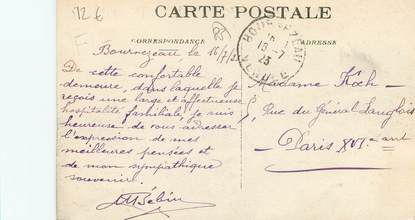 126
CARTE POSTALE
CORRESPONDANCE
ADRESSE
Bournezeau le 16/7/25
De cette confortable
demeure, dans laquelle je
reçois une large et affectueuse
hospitalité familiale, je suis
heureuse de vous adresser
l'expression de mes
meilleures pensées et
de mon sympathique
souvenir.
BOURNEZEAU
16-7
25
VENDÉE
Madame Koch
Rue du Général Langlois
Paris XVIe arrt